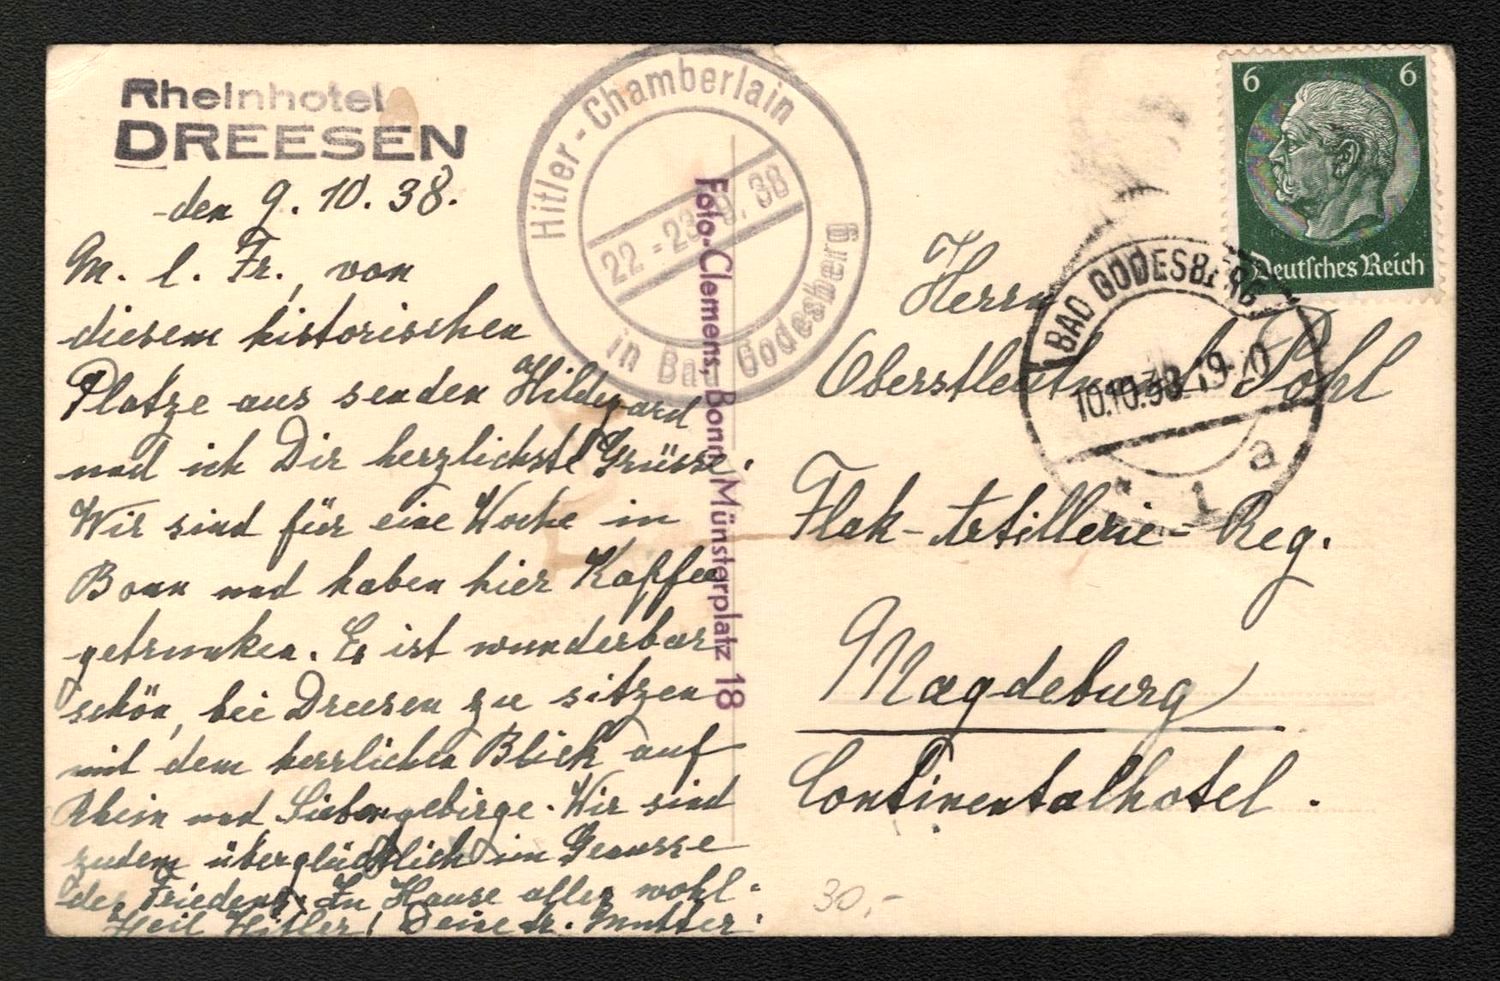 Rheinhotel
DREESEN
den 9.10.38.
M. l. Fr., von
diesem historischen
Platze aus senden Hildegard
und ich Dir herzlichste Grüsse.
Wir sind für eine Woche in
Bonn und haben hier Kaffee
getrunken. Es ist wunderbar
schön, bei Dreesen zu sitzen
mit dem herrlichen Blick auf
Rhein und Siebengebirge. Wir sind
zudem überglücklich im Genusse
des Friedens. Zu Hause alles wohl.
Heil Hitler! Deine tr. Mutter.
Hitler-Chamberlain
22.-23.9.38
in Bad Godesberg
Foto-Clemens, Bonn, Münsterplatz 18
6 6
Deutsches Reich
BAD GODESBERG
10.10.38.19-20
1 a
Herrn
Oberstleutnant Pohl
Flak-Artillerie-Reg.
Magdeburg
Continentalhotel.
30,-